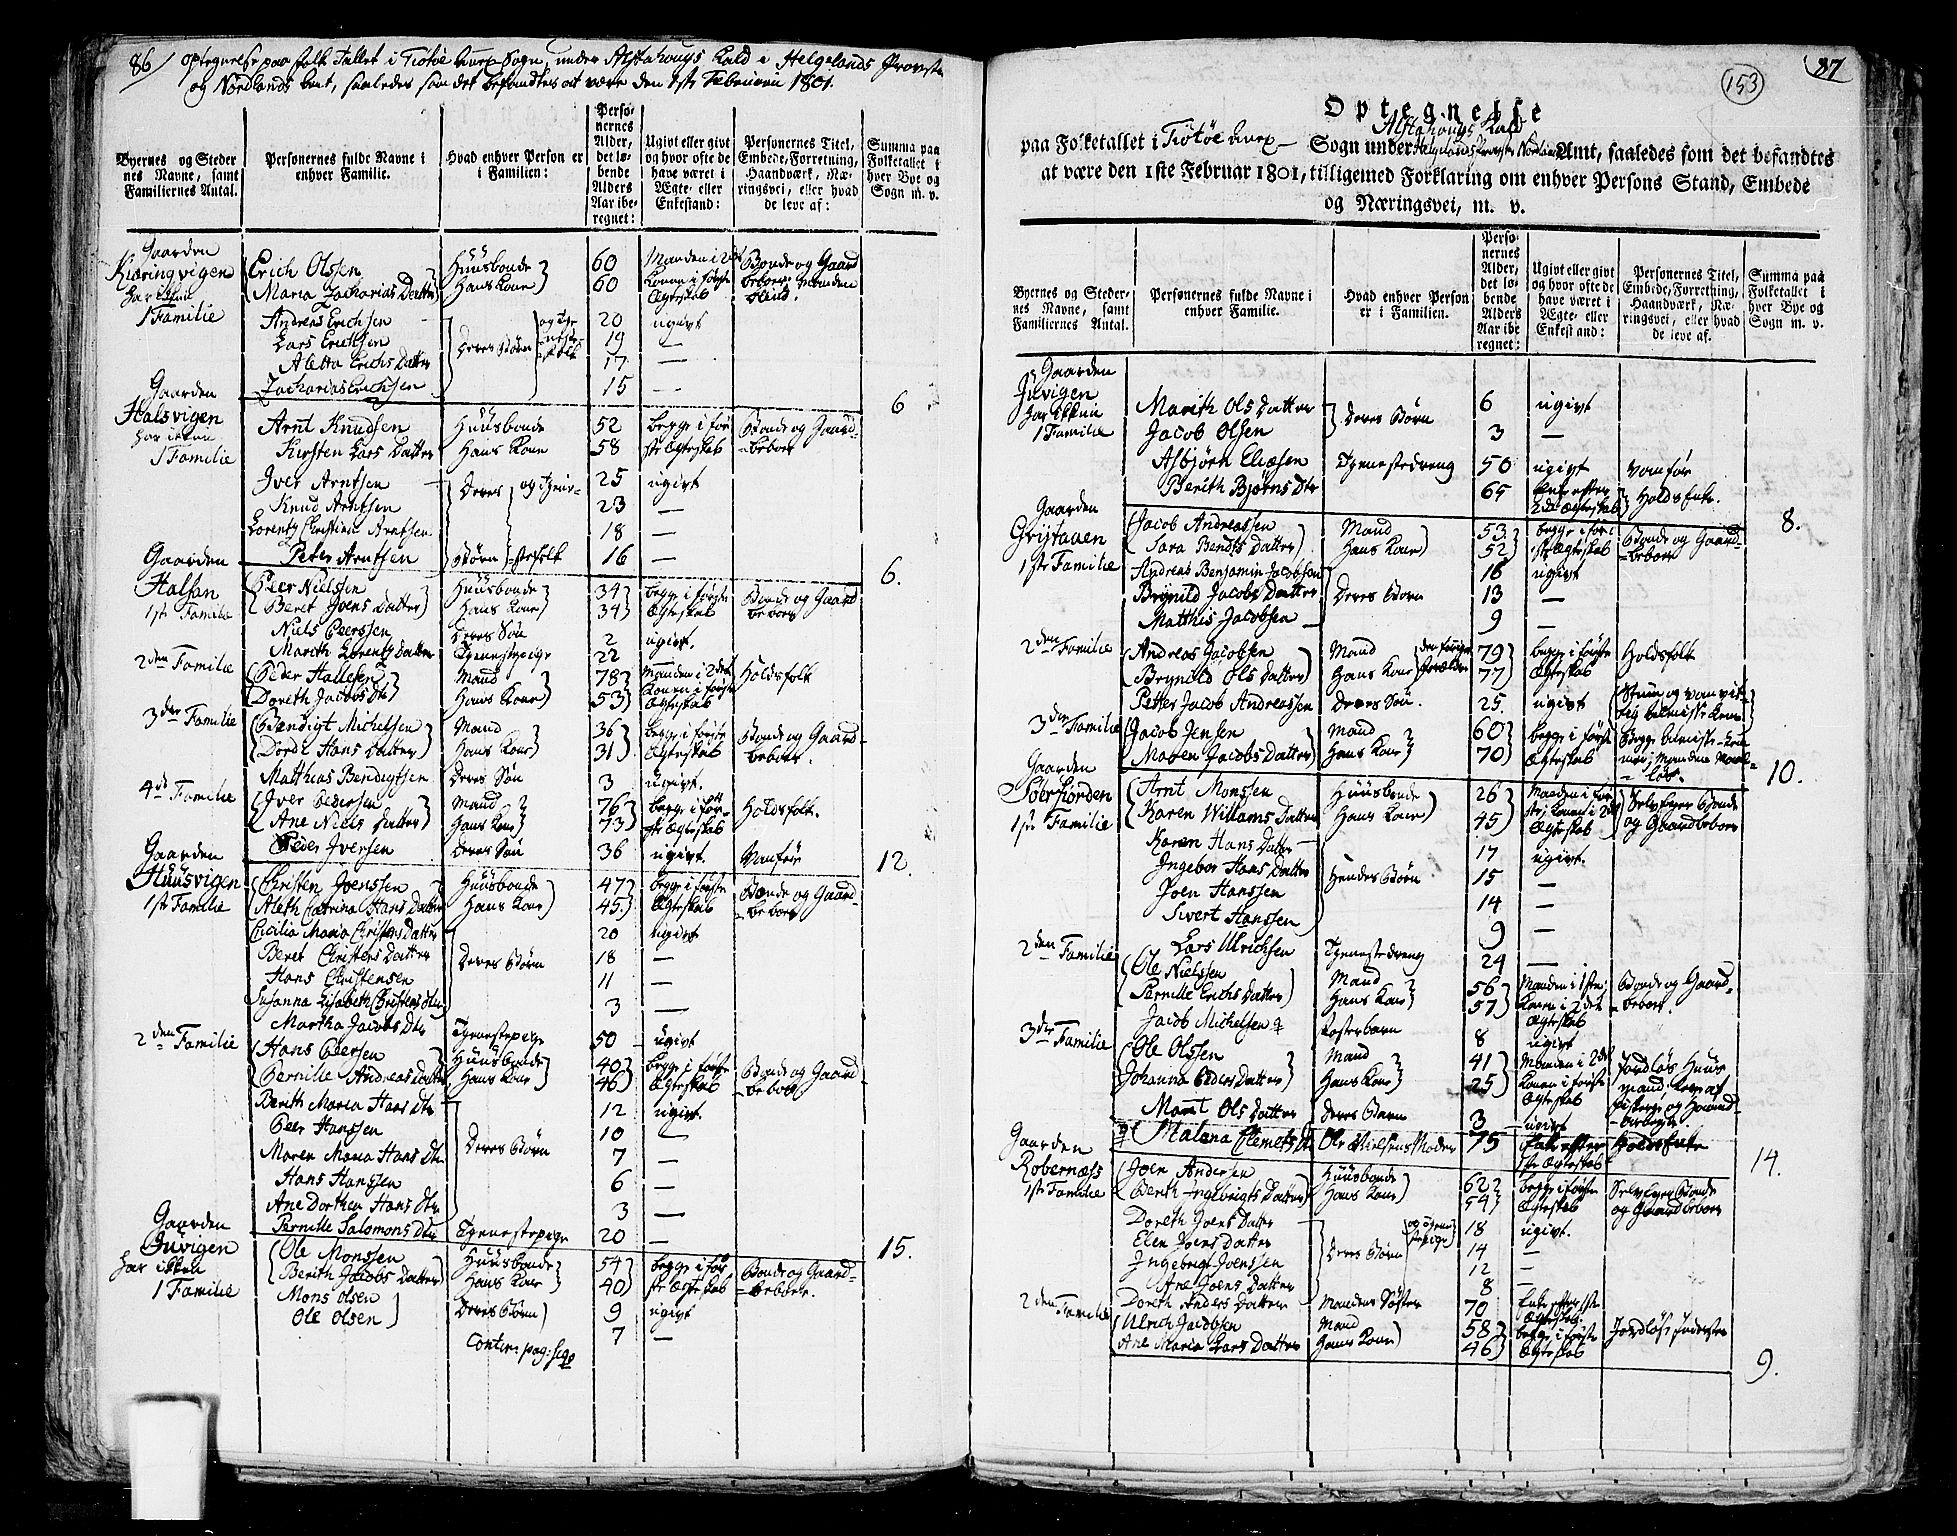 86
Optegnelse paa folke Tallet i Tiötöe Sogn, under Alstahougs Kald i Helgelands Provstie
og Nordlands Amt, saaledes som det befandtes at være den 1ste Februarii 1801.
Byernes og Steder nes Navne, samt Familiernes Antal.
Personernes fulde Navne i enhver Familie.
Hvad enhver Person er i Familien:
Perso-nernes Alder, det lø-bende Alders Aar ibe-regnet:
Ugivt eller givt og hvor ofte de have været i Ægte- eller Enkestand:
Personernes Titel, Embede, Forretning, Haandværk, Næ-ringsvei, eller hvad de leve af:
Summa paa Folketallet i hver Bye og Sogn m. v.
Gaarden
Kiæringvigen
har ikkun
1 Familie
Erich Olssen Huusbonde 60 Manden i 2det Bonde og Gaard
Maria Zacharias Datter Hans Kone 60 Konen i første Ægteskab beboer
Andreas Erichsen Deres Børn og Tjenestefolk 20 ugivt
Lars Erichsen 19 —
Aletta Erichs Datter 17 —
Zacharias Erichsen 15 —
6
Gaarden
Halsvigen
har ikkun
1 Familie
Arnt Knudsen Huusbonde 52 begge i før Bonde og Gaard-
Kirsten Lars Datter Hans Kone 58 ste Ægteskab beboer
Iver Arntsen Deres og Tjeni- 25 ugivt
Knud Arntsen 23 —
Lorentz Christian Arntsen 18 —
Peter Arntsen Børn stefolk 16 —
6.
Gaarden
Halsan
1ste Familie
Peer Nielssen Huusbonde 34 begge i første Bonde og Gaard
Beret Joens Datter Hans Kone 34 Ægteskab beboer
Niels Peerssen Deres Søn 2 ugivt.
Marith Lorentz Datter Tjenestepige 22
2den Familie
Peder Hallesen Mand 78 Manden i 2det Holdsfolk
Dorith Jacobs Dtr Hans Kone 53 Konen i første Ægteskab
3die Familie
Bendigt Michelsen Mand 36 begge i første Bonde og Gaard
Dordi Hans Datter Hans Kone 31 Ægteskab beboer.
Matthias Bendigtsen Deres Søn 3 ugivt.
4de Familie
Iver Pedersen Mand 76 begge i før- Holdsfolk.
Ane Niels Datter Hans Kone 73 ste Ægteskab
Peder Iversen Deres Søn 36 ugivt. Vanfør
12.
Gaarden
Huusvigen
1ste Familie
Christen Joenssen Huusbonde 47 begge i første Bonde og Gaard-
Aleth Catrina Hans Datter Hans Kone 45 Ægteskab beboer
Cecilia Maria Christens Datter Deres Børn 20 ugivt
Beret Christens Datter 18 —
Hans Christensen 11 —
Susanna Lisabeth Christens Dtr 3 —
Martha Jacobs Dtr Tjenestepige 50 ugivt
2den Familie
Hans Peersen Huusbonde 40 begge i første Bonde og Gaard
Pernille Andreas Datter Hans Kone 46 Ægteskab beboer
Berith Maria Hans Dtr Deres Børn 12 ugivt
Peer Hanssen 10 —
Maren Maria Hans Dtr 7 —
Hans Hanssen 6 —
Ane Dorthea Hans Dtr 3 —
Pernille Salomons Dtr Tjenestepige 20 —
15.
Gaarden
Juvigen
har ikkun
1 Familie
Ole Monssen Huusbonde 54 begge i før Bonde og Gaard-
Berith Jacobs Datter Hans Kone 40 ste Ægteskab beboere
Mons Olsen Deres Børn 9 ugivt
Ole Olsen 7 —
Contin: pag: seqv
87
153
Optegnelse
paa Folketallet i Tiötöe Sogn under Alstahougs Kald Helgelands Provstie Nordlands Amt, saaledes som det befandtes
at være den 1ste Februar 1801, tilligemed Forklaring om enhver Persons Stand, Embede
og Næringsvei, m. v.
Byernes og Steder-nes Navne, samt Familiernes Antal.
Personernes fulde Navne i enhver Familie.
Hvad enhver Person er i Familien.
Perso-nernes Alder, det lø-bende Alders Aar ibe regnet:
Ugivt eller givt og hvor ofte de have været i Ægte- eller Enkestand:
Personernes Titel, Embede, Forretning, Haandværk, Næ-ringsvei, eller hvad de leve af.
Summa paa Folketallet i hver Bye og Sogn m. v.
Gaarden
Juvigen
har ikkun
1 Familie
Marith Ols Datter Deres Børn 6 ugivt
Jacob Olsen 3 —
Asbjørn Eliæsen Tjenestedreng 50 ugivt Vanfør
Berith Bjørns Dtr 65 Enke efter 2det Ægteskab Holdsfolk.
8.
Gaarden
Grystauen
1ste Familie
Jacob Andreassen Mand 53 begge i før- Bonde og Gaard-
Sara Bendts Datter Hans Kone 52 ste Ægteskab beboer
Andreas Benjamin Jacobsen Deres Børn 16 ugivt
Brynild Jacobs Datter 13 —
Matthis Jacobsen 9 —
2den Familie
Andreas Jacobsen Mand den foriges 79 begge i første Holdsfolk
Brynild Ols Datter Hans Kone Forældre 77 Ægteskab
Petter Jacob Andreassen Deres Søn. 25. ugivt Stum og vanvit-tig
3die Familie
Jacob Jensen Mand 60 begge i første
Maren Jacobs Datter Hans Kone 70 Ægteskab
10.
Gaarden
Sörfiorden
1ste Familie
Arnt Monssen Huusbonde 26 Manden i før Selveyer Bonde
Karen Willams Datter Hans Kone 45 ste, Konen i 2det Ægteskab og Gaardbeboer
Karen Hans Datter Hendes Børn 17 ugivt.
Ingebor Hans Datter 15 —
Joen Hanssen 14 —
Sivert Hanssen 9 —
Lars Ulrichsen Tjenestedreng 24 —
2den Familie
Ole Nielssen Mand 56 Manden i 1ste, Bonde og Gaard-
Pernille Erichs Datter Hans Kone 57 Konen i 2det Ægteskab beboer.
Jacob Michelsen Fosterbarn 8 ugivt
3die Familie
Ole Olssen Mand 41 Manden i 2det Jordløs Huus
Johanna Peders Datter Hans Kone 25 Konen i første Ægteskab mand, lever af fiskerie og Haand-arbeyde
Marit Ols Datter Deres Barn 3 ugivt
Malena Clemets Dtr Ole Nielsens Moder 75 Enke efter 1ste Ægteskab Holdsfolk
14.
Gaarden
Robernæss
1ste Familie
Joen Andersen Huusbonde 62 begge i første Selveyer Bonde
Berith Ingebrigts Datter Hans Kone 54 Ægteskab og Gaardbeboer
Dorith Joens Datter Deres Børn og Tjene stepige 18 ugivt.
Elen Joens Datter 14 —
Ingebrigt Joenssen 12 —
Ane Joens Datter 8 —
Dorith Anders Datter Mandens Søster 70 Enke efter 1ste Ægteskab
2den Familie
Ulrich Jacobsen Mand 58 begge i første Jordløs
Ane Maria Lars Datter Hans Kone 46 Ægteskab
9.